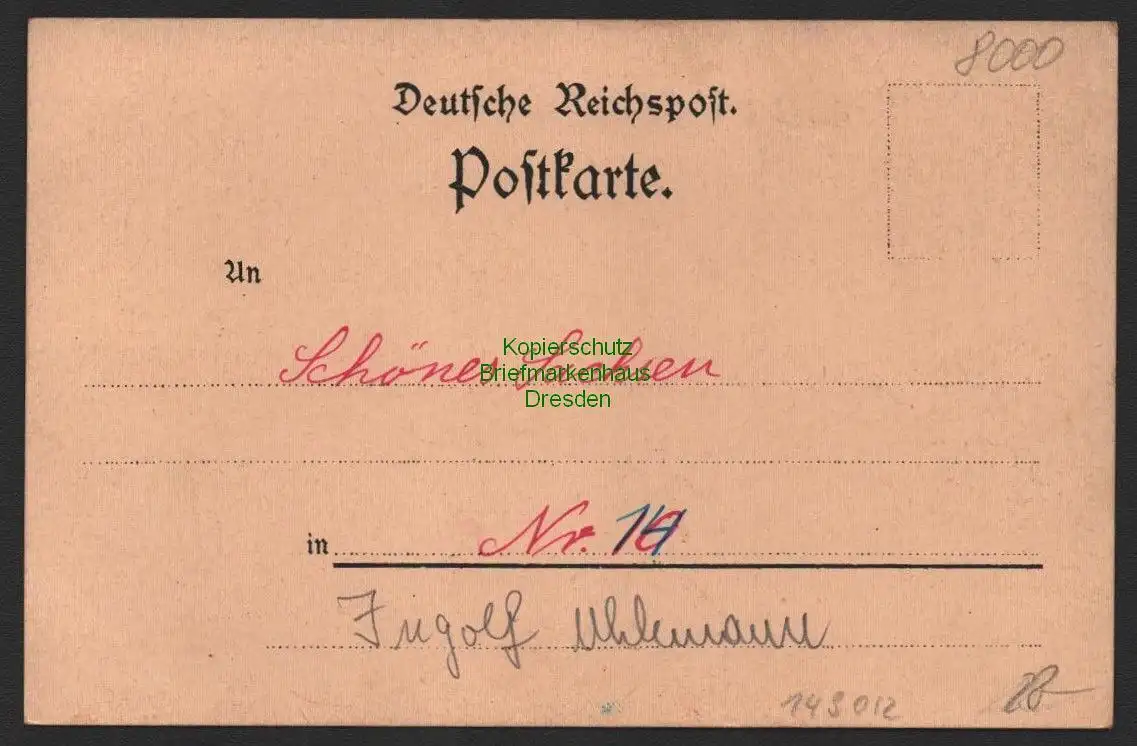 8000
Deutsche Reichspost.
Postkarte.
An
Schönes Sachsen
Kopierschutz
Briefmarkenhaus
Dresden
in Nr. 14
Ingolf Uhlemann
149012